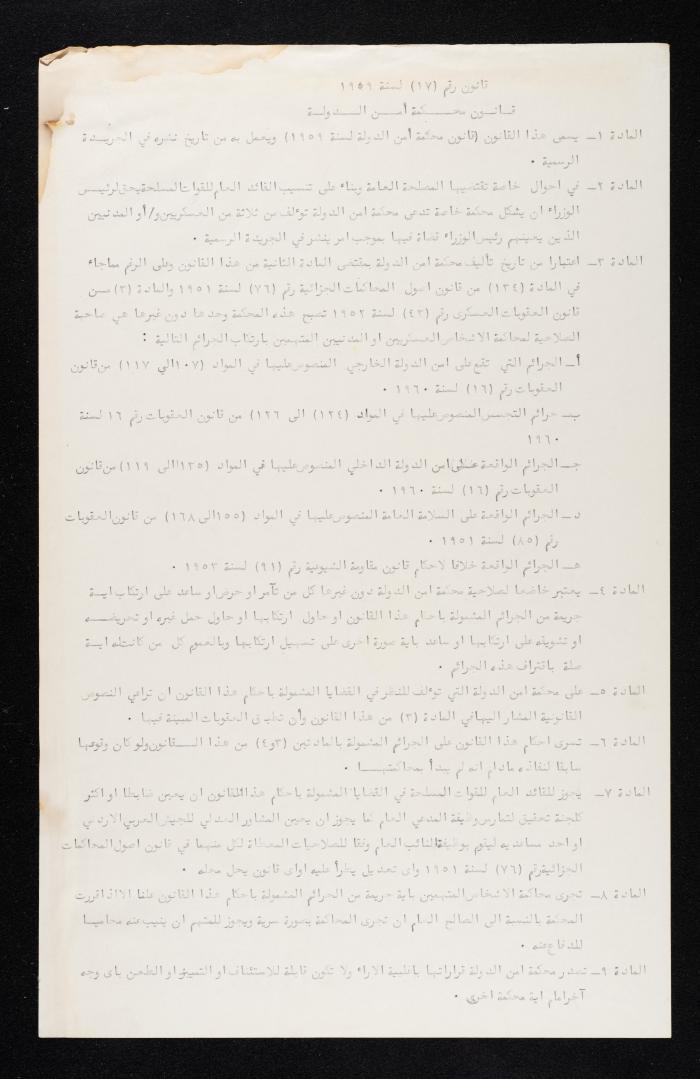 قانون رقم (١٧) لسنة ١٩٥٩
قـانـون محــكـمة أمـن الـدولـة
المادة ١ــ يسمى هذا القانون (قانون محكمة أمن الدولة لسنة ١٩٥٩) ويعمل به من تاريخ نشره في الجريـدة
الرسمية ٠
المادة ٢ــ في احوال خاصة تقتضيها المصلحة العامة وبناء على تنسيب القائد العام للقوات المسلحة يحق لرئيس
الوزراء ان يشكل محكمة خاصة تدعى محكمة امن الدولة تؤلف من ثلاثة من العسكريين و/أو المدنيين
الذين يعينهم رئيس الوزراء قضاة فيها بموجب امر ينشر في الجريدة الرسمية ٠
المادة ٣ــ اعتبارا من تاريخ تأليف محكمة امن الدولة بمقتضى المادة الثانية من هذا القانون وعلى الرغم مماجاء
في المادة (١٣٤) من قانون اصول المحاكمات الجزائية رقم (٧٦) لسنة ١٩٥١ والمادة (٣) مـن
قانون العقوبات العسكرى رقم (٤٣) لسنة ١٩٥٢ تصبح هذه المحكمة وحدها دون غيرها هي صاحبة
الصلاحية لمحاكمة الاشخاص العسكريين او المدنيين المتهمين بارتكاب الجرائم التالية :
أ ــ الجرائم التي تقع على امن الدولة الخارجي المنصوص عليها في المواد (١٠٧ الي ١١٧) من قانون
العقوبات رقم (١٦) لسنة ١٩٦٠ ٠
بــ جرائم التجسس المنصوص عليها في المواد (١٢٤) الى ١٢٦) من قانون العقوبات رقم ١٦ لسنة
١٩٦٠
جــ الجرائم الواقعة على امن الدولة الداخلي المنصوص عليها في المواد (١٣٥ الى ١١٩) من قانون
العقوبات رقم (١٦) لسنة ١٩٦٠ ٠
د ــ الجرائم الواقعة على السلامة العامة المنصوص عليها في المواد (١٥٥ الى ١٦٨) من قانون العقوبات
رقم (٨٥) لسنة ١٩٥١ ٠
هــ الجرائم الواقعة خلافا لاحكام قانون مقاومة الشيوعية رقم (٩١) لسنة ١٩٥٣ ٠
المادة ٤ــ يعتبر خاضعا لصلاحية محكمة امن الدولة دون غيرها كل من تآمر او حرض او ساعد على ارتكاب ايـة
جريمة من الجرائم المشمولة باحكام هذا القانون او حاول ارتكابها او حاول حمل غيره او تحريضـه
او تشويقه على ارتكابها او ساعد باية صورة اخرى على تسهيل ارتكابها وبالعموم كل من كانت له ايـة
صلة باقتراف هذه الجرائم ٠
المادة ٥ــ على محكمة امن الدولة التي تؤلف للنظر في القضايا المشمولة باحكام هذا القانون ان تراعي النصوص
القانونية المشار اليها في المادة (٣) من هذا القانون وأن تطبق العقوبات المبينة فيها ٠
المادة ٦ــ تسرى احكام هذا القانون على الجرائم المشمولة بالمادتين (٣و٤) من هذا الـقانون ولو كان وقوعها
سابقا لنفاذه مادام انه لم يبدأ بمحاكمتهـا ٠
المادة ٧ــ يجوز للقائد العام للقوات المسلحة في القضايا المشمولة باحكام هذا القانون ان يعين ضابطا او اكثر
كلجنة تحقيق لتمارس وظيفة المدعي العام كما يجوز ان يعين المشاور العدلي للجيش العربي الاردني
او احد مساعديه ليقوم بوظيفة النائب العام وفقا للصلاحيات المعطاة لكل منهما في قانون اصول المحاكمات
الجزائية رقم (٧٦) لسنة ١٩٥١ واى تعديل يطرأ عليه اواى قانون يحل محله ٠
المادة ٨ــ تجرى محاكمة الاشخاص المتهمين باية جريمة من الجرائم المشمولة باحكام هذا القانون علنا الا اذا قررت
المحكمة بالنسبة الى الصالح العام ان تجرى المحاكمة بصورة سرية ويجوز للمتهم ان ينيب عنه محاميـا
للدفاع عنه ٠
المادة ٩ــ تصدر محكمة امن الدولة قراراتها باغلبية الاراء ولا تكون قابلة للاستئناف او التمييز او الطعن باى وجه
آخر امام اية محكمة اخرى ٠